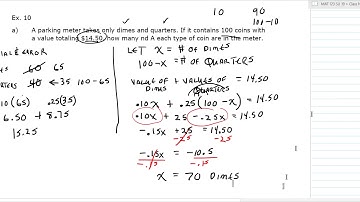 MAT 0312 10 - Qua
Ex. 10
10 90
100-10
a) A parking meter takes only dimes and quarters. If it contains 100 coins with
a value totaling $14.50, how many nd A each type of coin are in the meter.
IAL & ERROR
60 65
40 ← 35 100-65
10(65) .25(35)
6.50 + 8.75
15.25
LET X = # OF DIMES
100-X = # OF QUARTERS
VALUE OF DIMES + VALUES OF QUARTERS = 14.50
.10X + .25(100-X) = 14.50
.10X + 25 -.25X = 14.50
-.15X + 25 = 14.50
-25 -25
-.15X = -10.5
-.15 -.15
X = 70 DIMES